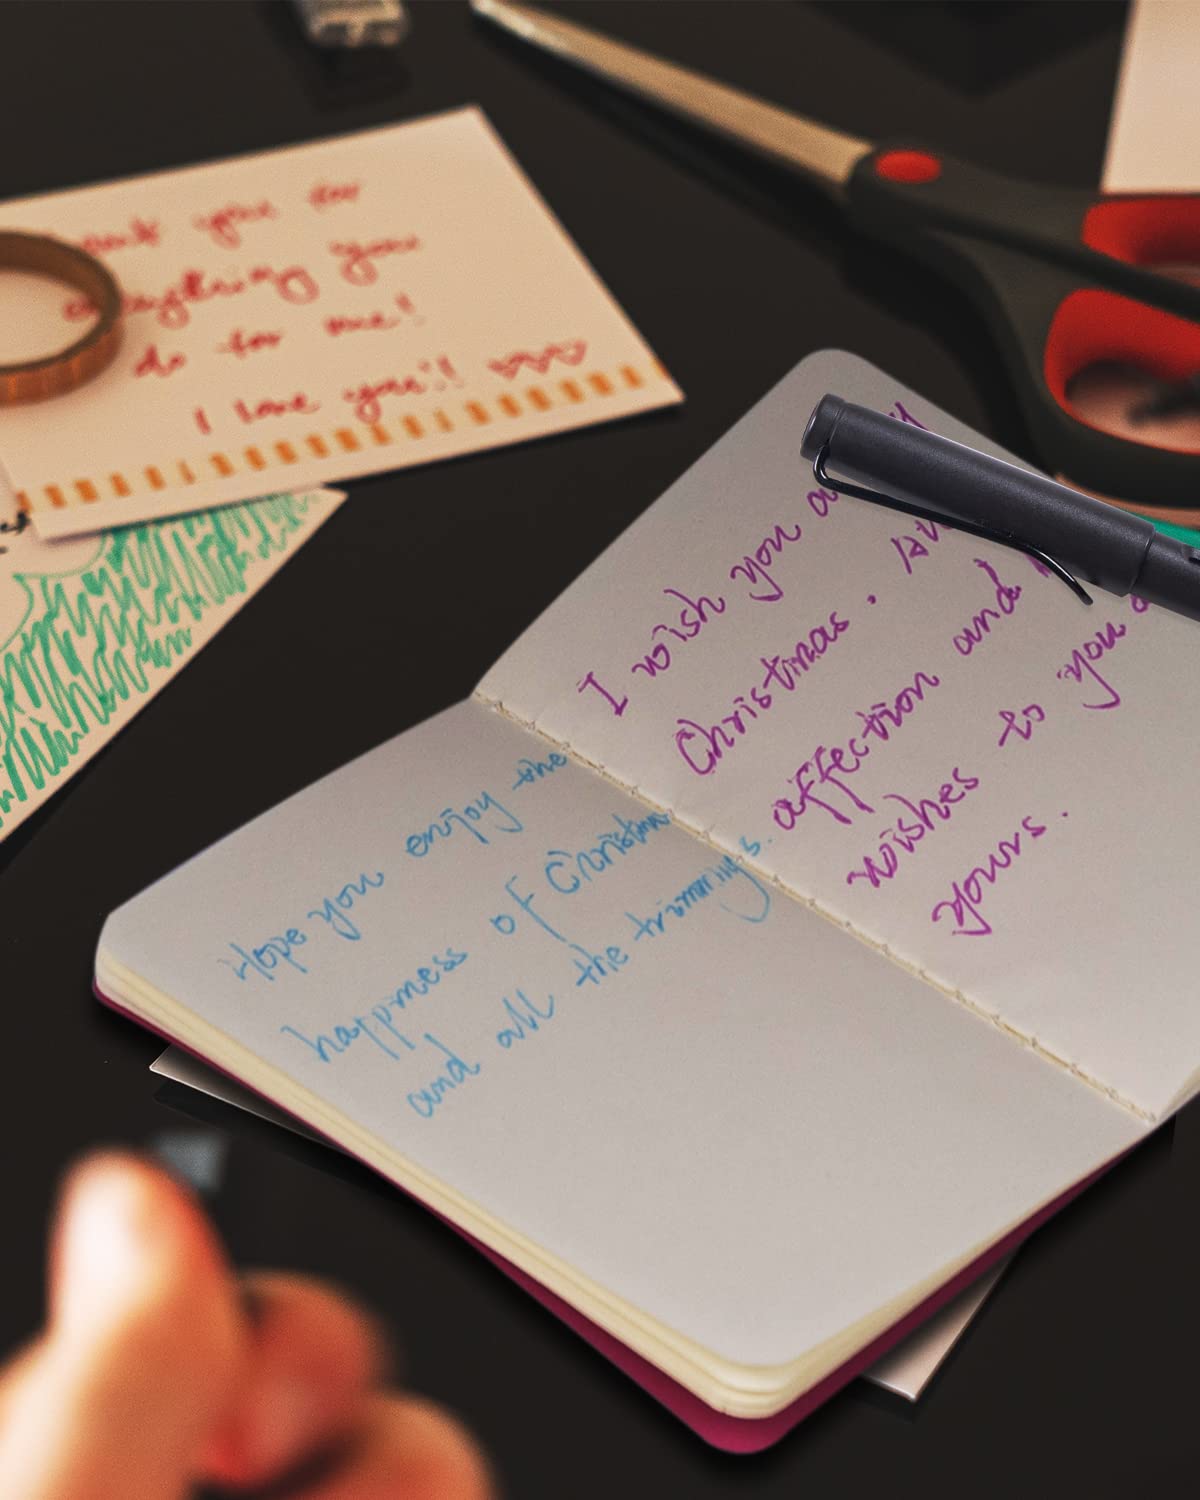 you for
everything you
do for me!
I love you!!
I wish you a
Christmas.
affection and
wishes to you
yours.
Hope you enjoy the
happiness of Christmas
and all the trimmings.